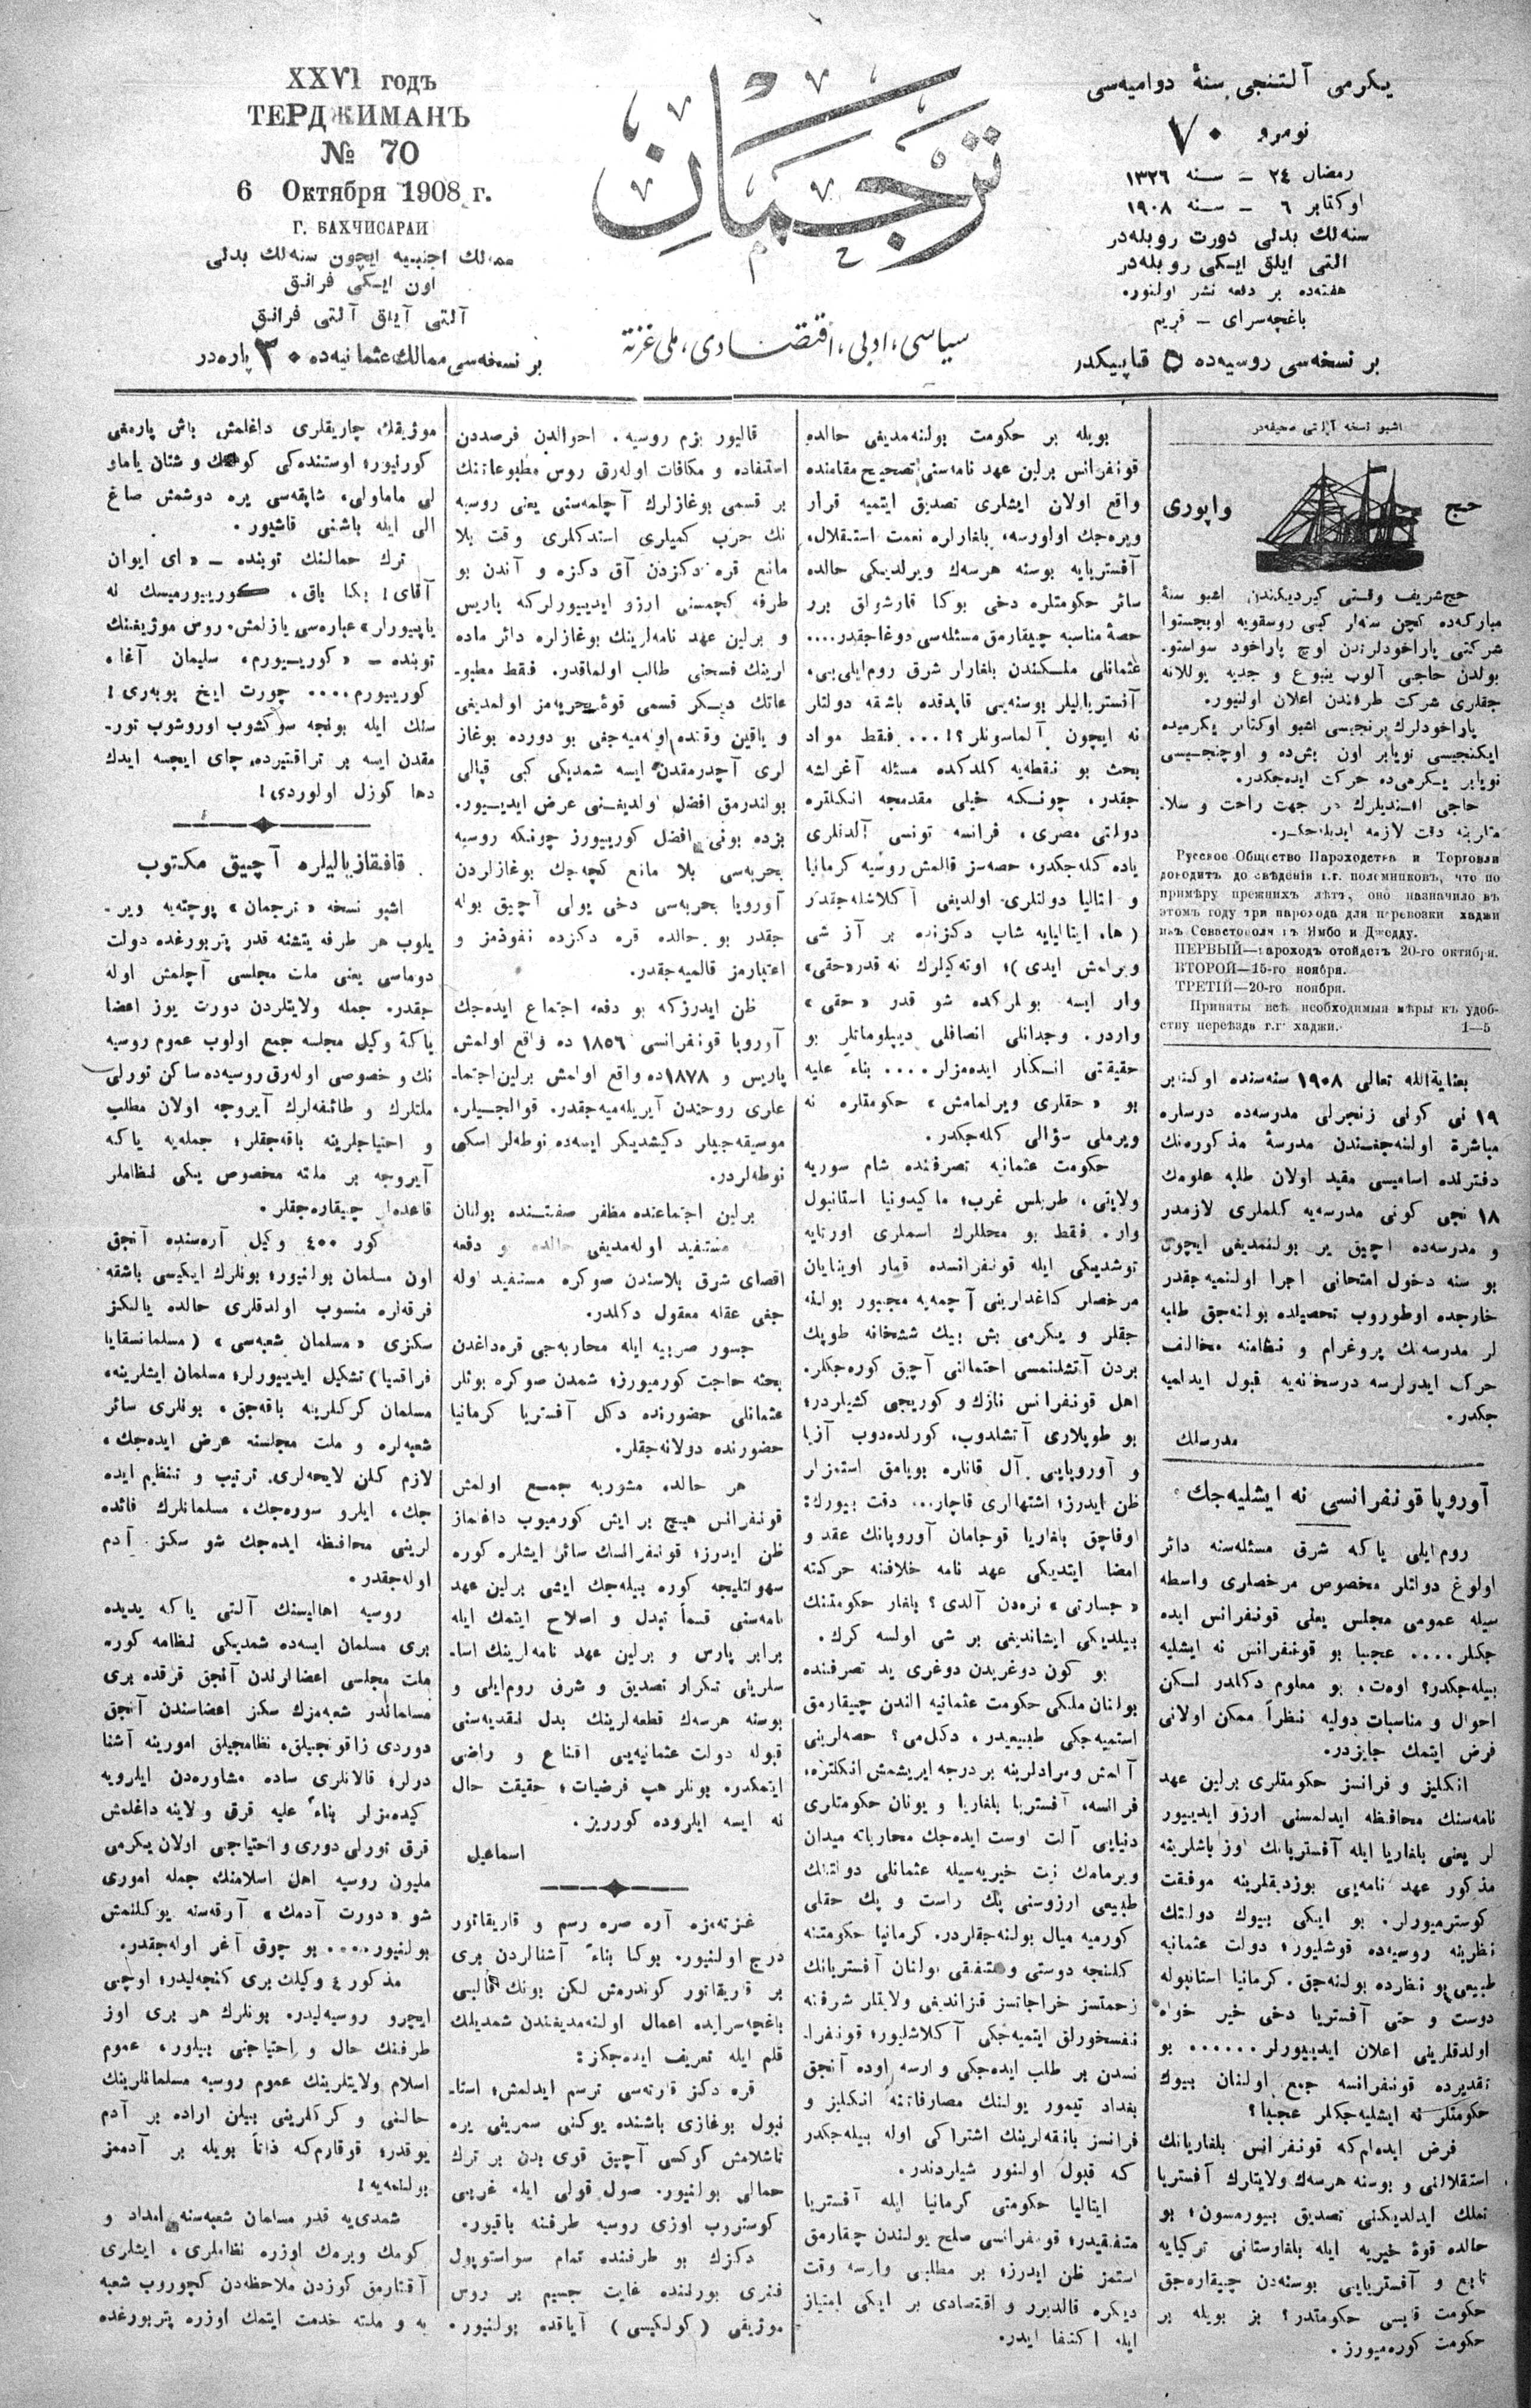 XXVI годъ
ТЕРДЖИМАНЪ
№ 70
6 Октября 1908 г.
Г. БАХЧИСАРАИ
ممالك اجنبیه ایچون سنه‌لك بدلی
اون ایـكی فرانق
آلتی آیلق آلتی فرانق
بر نسخه‌سی ممالك عثمانیه‌ده ۳۰ پاره‌در
ترجمان
سیاسی، ادبی، اقتصادی، ملی غزته
یكرمی آلتنجی سنۀ دوامیه‌سی
نومرو ۷۰
رمضان ۲٤ – سنه ۱۳۲٦
اوكتابر ٦ – سنه ۱۹۰۸
سنه‌لك بدلی دورت روبله‌در
التی ایلق ایـكی روبله‌در
هفته‌ده بر دفعه نشر اولنور.
باغچه‌سرای – قریم
بر نسخه‌سی روسیه‌ده ۵ قاپیكدر
اشبو نسخه آلتی صحیفه‌در
حج واپوری
حج شریف وقتی كیردیكندن اشبو سنۀ
شركتی پاراخودلرندن اوچ پاراخود سواستو-
بولدن حاجی آلوب ینبوع و جدیه یوللانه
جقلری شركت طرفندن اعلان اولنیور.
پاراخودلرك برنجیسی اشبو اوكتابر یكرمیده
ایكنجیسی نویابر اون بش‌ده و اوچنجـیسی
نویابر یـكرمی‌ده حركت ایده‌جكدر.
Русское Общество Пароходства и Торговли
доводитъ до свѣдѣнія г.г. паломниковъ, что по
примѣру прежнихъ лѣтъ, оно назначило въ
этомъ году три парохода для перевозки хаджи
изъ Севастополя въ Ямбо и Джедду.
ПЕРВЫЙ—пароходъ отойдетъ 20-го октября.
ВТОРОЙ—15-го ноября.
ТРЕТІЙ—20-го ноября.
Приняты всѣ необходимыя мѣры къ удоб-
ству переѣзда г.г хаджи. 1—5
بعنایةالله تعالی ۱۹۰۸ سنه‌سنده اوكتابر
۱۹ نی كونی زنجرلی مدرسه‌ده درسلره
مباشرة اولنه‌جغـندن مدرسۀ مذكوره‌نك
دفترنده اسامیسی مقید اولان طلبه علومك
۱۸ نجی كونی مدرسه‌یه كلملری لازمدر
و مدرسه‌ده آچیق یر بولنمدیغی ایچون
بو سنه دخول امتحانی اجرا اولنمیه‌جقدر
خارجده اوطوروب تحصیلده بولنه‌جق طلبه
لر مدرسه‌نك پروغرام و نظامنه مخالف
حركت ایدرلرسه درسخانه‌یه قبول ایدلمیه
جكدر.
آوروپا قونفرانسی نه ایشلیه‌جك
روم‌ایلی یاكه شرق مسئله‌سنه دائر
اولوغ دولتلر مخصوص مرخصلری واسطه
سیله عمومی مجلس یعنی قونفرانس ایده
جكلر.... عجبا بو قونفرانس نه ایشلیه
بیله‌جكدر؟ اوت، بو معلوم دكلدر لـكن
احوال و مناسبات دولیه نظراً ممكن اولانی
فرض ایتمك جایزدر.
انكلیز و فرانسز حكومتلری برلین عهد
نامه‌سنك محافظه ایدلمسنی ارزو ایدیـیور
لر یعنی بلغاریا ایله آفستریانك اوز باشلرینه
مذكور عهد نامه‌یی بوزدیقلرینه موفقت
كوسترمیورلر. بو ایكی بیوك دولتك
نظرینه روسیه‌ده قوشلیور؛ دولت عثمانیه
طبیعی بو نظارده بولنه‌جق. كرمانیا استانبوله
دوست و حتی آفستریا دخی خیر خواه
اولدقلرینی اعلان ایدیـیورلر...... بو
تقدیرده قونفرانسه جمع اولنان بیوك
حكومتلر نه ایشلیه‌جكلر عجبا؟
فرض ایده‌لم‌كه قونفرانس بلغاریانك
استقلالنی و بوسنه هرسك ولایتلرك آفستریا
تملك ایدلدیكنی تصدیق بیورمسون؛ بو
حالده قوۀ خیریه ایله بلغارستانی تركیایه
تابع و آفستریایی بوسنه‌دن چیقاره‌جق
حكومت قایسی حكومتدر؟ بز بویله بر
حكومت كوره‌میورز.
بویله بر حكومت بولنه‌مدیغی حالده
قونفرانس برلین عهد نامه‌سنی تصحیح مقامنده
واقع اولان ایشلری تصدیق ایتمیه قرار
ویره‌جك اولورسه، بلغارلره نعمت استقلال،
آفستریایه بوسنه هرسك ویرلدیكی حالده
سائر حكومتلره دخی بوكا قارشولق برر
حصۀ مناسبه چیقارمق مسئله‌سی دوغاجقدر....
عثمانلی ملـكندن بلغارلر شرق روم‌ایلی‌یی،
آفستریالیلر بوسنه‌یی قاپدقده باشقه دولتلر
نه ایچون آلماسونلر؟!... فقط مواد
بحث بو نقطه‌یه كلدكده مسئله آغرلشه
جقدر. چونـكه خیلی مقدمجه انكلتره
دولتی مصری، فرانسه تونسی آلدقلری
یاده كله‌جكدر، حصه‌سز قالمش روسیه كرمانیا
و ایتالیا دولتلری اولدیغی آكلاشله‌جقدر
ویرلمش ایدی)؛ اوته‌كیلرك نه قدر «حقی»
وار ایسه بولركده شو قدر «حقی»
واردر. وجدانلی انصافلی دیپلوماتلر بو
حقیقتی انـكار ایده‌مزلر.... بناء علیه
بو «حقلری ویرلمامش» حكومتلره نه
ویرملی سؤالی كله‌جكدر.
حكومت عثمانیه تصرفنده شام سوریه
ولایتی، طربلس غرب؛ ماكیدونیا استانبول
وار. فقط بو محللرك اسملری اورتایه
توشدیكی ایله قونفرانسده قمار اوینایان
مرخصلر كاغدلرینی آچمه‌یه مجبور بولنه
جقلر و یـكرمی بش بیك ششخانه طوپك
بردن آتشلنمسی احتمالنی آچیق كوره‌جكلر.
اهل قونفرانس نازك و كوریجی كشیلردر؛
بو طوپلری آتشلدوب، كورلده‌دوب آزیا
و آوروپایی آل قانلره بویامق استه‌مزلر
ظن ایدرز؛ اشتهالری قاچار... دقت بیورك:
اوفاچق بلغاریا قوجامان آوروپانك عقد و
امضا ایتدیكی عهد نامه خلافنه حركته
«جسارتی» نره‌دن آلدی؟ بلغار حكومتنك
بیلدیكی ایشاندیغی بر شی اولسه كرك.
بو كون دوغریدن دوغری ید تصرفنده
بولنان ملكی حكومت عثمانیه الندن چیقارمق
استمیه‌جكی طبیعیدر، دكل‌می؟ حصه‌لرینی
آلمش و مرادلرینه بر درجه ایریشمش انكلتره،
فرانسه، آفستریا بلغاریا و یونان حكومتلری
دنیایی آلت اوست ایده‌جك محارباته میدان
ویرمامك نیت خیریه‌سیله عثمانلی دولتنك
طبیعی ارزوسنی پك راست و پك حقلی
كورمیه میال بولنه‌جقلردر. كرمانیا حكومتنه
كلنجه دوستی و متفقی بولنان آفستریانك
زحمتسز خراجاتسز قزاندیغی ولایتلر شرفنه
نسدن بر طلب ایده‌جكی وارسه اوده آنجق
بغداد تیمور یولنك مصارفاتنه انكلیز و
فرانسز بانقه‌لرینك اشتراكی اوله بیله‌جكدر
كه قبول اولنور شیلردندر.
ایتالیا حكومتی كرمانیا ایله آفستریا
متفقیدر؛ قونفرانسی صلح یولندن چقارمق
استمز ظن ایدرز؛ بر مطلبی وارسه وقت
دیكره قالدیرر و اقتصادی بر ایكی امتیاز
ایله اكتفا ایدر.
قالیور بزم روسیه. احوالدن فرصددن
استفاده و مكافات اوله‌رق روس مطبوعاتنك
بر قسمی بوغازلرك آچلمه‌سنی یعنی روسیه
نك حرب كمیلری استدكلری وقت بلا
مانع قره دكزدن آق دكزه و آندن بو
طرفه كچمسنی ارزو ایدیـیورلركه پاریس
و برلین عهد نامه‌لرینك بوغازلره دائر ماده
لرینك فسحنی طالب اولماقدر. فقط مطبو-
عاتك دیـكر قسمی قوۀ بحریه‌مز اولمدیغی
و یاقین وقتده اوله‌میه‌جغی بو دورده بوغاز
لری آچدرمقدن ایسه شمدیكی كبی قپالی
بولندرمق افضل اولدیغـنی عرض ایدیـیور.
بزده بونی افضل كوریـیورز چونكه روسیه
بحریه‌سی بلا مانع كچه‌جك بوغازلردن
آوروپا بحریه‌سی دخی یولی آچیق بوله
جقدر بو حالده قره دكزده نفوذمز و
اعتبارمز قالمیه‌جقدر.
ظن ایدرزكه بو دفعه اجتماع ایده‌جك
آوروپا قونفرانسی ۱۸٥٦ ده واقع اولمش
پاریس و ۱۸۷۸ده واقع اولمش برلین اجتما-
علری روحندن آیریله‌میه‌جقدر. قوالجیلر،
موسیقه‌جیلر دكیشدیكر ایسه‌ده نوطه‌لر اسكی
نوطه‌لردر.
برلین اجتماعنده مظفر صفتـنده بولنان
اقصای شرق بلاسندن صوكره مستفید اوله
جغی عقله معقول دكلدر.
جسور صربیه ایله محاربه‌جی قره‌داغدن
بحثه حاجت كورمیورز؛ شمدن صوكره بونلر
عثمانلی حضورنده دكل آفستریا كرمانیا
حضورنده دولانه‌جقلر.
هر حالده مشوربه جمـع اولمش
قونفرانس هیچ بر ایش كورمیوب داغلماز
ظن ایدرز؛ قونفرانسك سائر ایشلره كوره
سهولتلیجه كوره بیله‌جك ایشی برلین عهد
نامه‌سنی قسماً تبدل و اصلاح ایتمك ایله
برابر پارس و برلین عهد نامه‌لرینك اسا-
سلرینی تكرار تصدیق و شرق روم‌ایلی و
بوسنه هرسك قطعه‌لرینك بدل نقدیه‌سنی
قبوله دولت عثمانیه‌یی اقناع و راضی
ایتمكدره بونلر هپ فرضیات؛ حقیقت حال
نه ایسه ایلروده كورریز.
اسماعیل
غزته‌مزه آره صره رسم و قاریقاتور
درج اولنیور. بوكا بناءً آشنالردن بری
بر قاریقاتور كوندرمش لكن بونك قالبی
باغچه‌سرایده اعمال اولنه‌مدیغندن شمدیلك
قلم ایله تعریف ایده‌جكز:
قره دكز قارته‌سی ترسم ایدلمش؛ استا-
نبول بوغازی باشنده یوكنی سمرینی یره
تاشلامش كوكسی آچیق قوی بدن بر ترك
حمالی بولنیور. صول قولی ایله غربی
كوستروب اوزی روسیه طرفنه باقیور.
دكزك بو طرفنده تمام سواستوپول
فنری بورلنده غایت جسیم بر روس
موژیقی (كولكیسی) آیاقده بولنیور.
موژیقك چاریقلری داغلمش باش پارمغی
كورلیور؛ اوستنده‌كی كوملك و شتان یاماو
لی ماماولی، شاپقه‌سی یره دوشمش صاغ
الی ایله باشنی قاشیور.
ترك حمالنك توبنده – «ای ایوان
آقای! بكا باق، كوریـیورمیسك نه
یاپیورلر» عباره‌سی یازلمش. روس موژیغنك
توبنده – «كوریـیورم، سلیمان آغا،
كوریـیورم.... چورت ایخ پوبه‌ری!
سنك ایله بونجه سوكشوب اوروشوب تور-
مقدن ایسه بر تراقتیرده چای ایچسه ایدك
دها كوزل اولوردی!
قافقازیالیلره آچیق مكتوب
اشبو نسخه «ترجمان» پوچته‌یه ویر-
یلوب هر طرفه یتشنه قدر پتربورغده دولت
دوماسی یعنی ملت مجلسی آچلمش اوله
جقدر. جمله ولایتلردن دورت یوز اعضا
یاكه وكیل مجلسه جمع اولوب عموم روسیه
نك و خصوصی اوله‌رق روسیه‌ده ساكن تورلی
ملتلرك و طائفه‌لرك آیروجه اولان مطلب
و احتیاجلرینه باقه‌جقلر؛ جمله‌یه یاكه
آیروجه بر ملته مخصوص یكی نظاملر
قاعده‌لر چیقاره‌جقلر.
كور ٤۰۰ وكیل آره‌سنده آنجق
اون مسلمان بولنیور؛ بونلرك ایكیسی باشقه
فرقه‌لره منسوب اولدقلری حالده یالكز
سكزی «مسلمان شعبه‌سی» (مسلمانسقایا
فراقسیا) تشكیل ایدیـیورلر؛ مسلمان ایشلرینه،
مسلمان كركلرینه باقه‌جق، بونلری سائر
شعبه‌لره و ملت مجلسنه عرض ایده‌جك،
لازم كلن لایحه‌لری ترتیب و تنظیم ایده
جك، ایلرو سوره‌جك، مسلمانلرك فائده
لرینی محافظه ایده‌جك شو سكز آدم
اوله‌جقدر.
روسیه اهالیسنك آلتی یاكه یدیده
بری مسلمان ایسه‌ده شمدیكی نظامه كوره
ملت مجلسی اعضالرلندن آنجق قرقده بری
مسلماندر شعبه‌مزك سكز اعضاسندن آنجق
دوردی زاقونجیلق، نظامجیلق امورینه آشنا
درلر؛ قالانلری ساده مشاوره‌دن ایلرویه
كیده‌مزلر بناءً علیه قرق ولاینه داغلمش
قرق تورلی دوری و احتیاجی اولان یكرمی
ملیون روسیه اهل اسلامنك جمله اموری
شو «دورت آدمك» آرقه‌سنه یوكلنمش
بولنیور..... بو چوق آغر اوله‌جقدر.
مذكور ٤ وكیلك بری كنجه‌لیدر؛ اوچی
ایچرو روسیه‌لیدر. بونلرك هر بری اوز
طرفنك حال و احتیاجنی بیلور، عموم
اسلام ولایتلرینك عموم روسیه مسلمانلرینك
حالنی و كركلرینی بیلن اراده بر آدم
یوقدر؛ قوقارم‌كه ذاتاً بویله بر آدممز
بولنمه‌یه!
شمدی‌یه قدر مسلمان شعبه‌سنه امداد و
كومك ویرمك اوزره نظاملری، ایشلری
آقتارمق كوزدن ملاحظه‌دن كچوروب شعبه
یه و ملته خدمت ایتمك اوزره پتربورغده